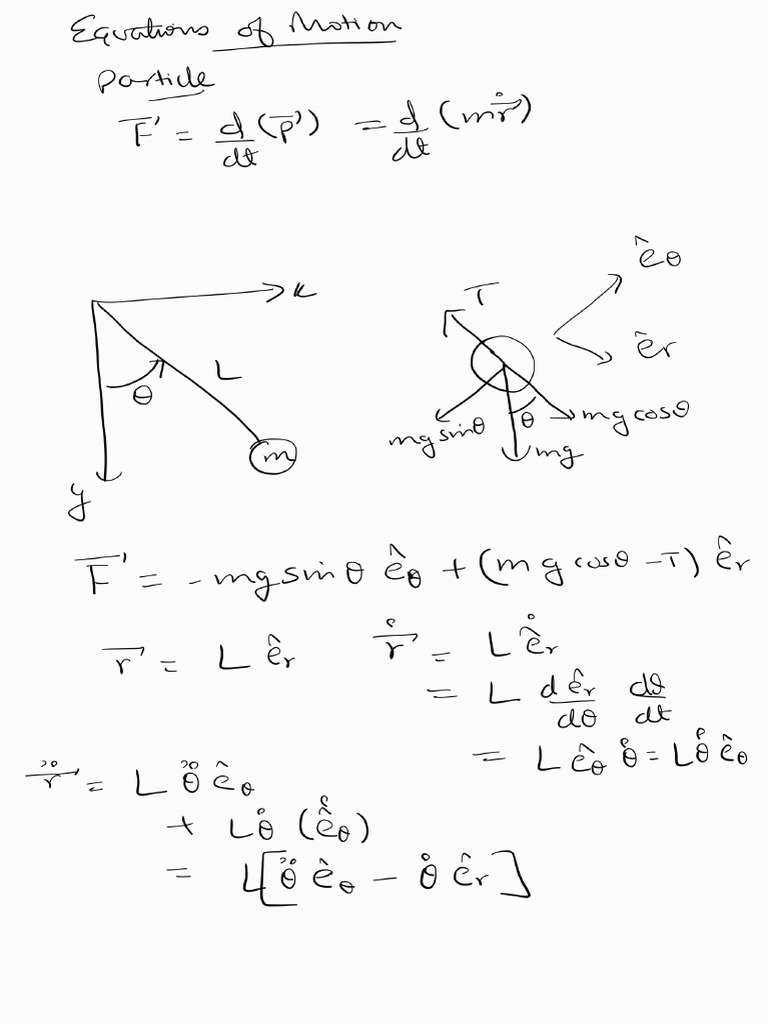 Equations of Motion
Particle
F⃗ = d/dt (p⃗) = d/dt (mṙ⃗)
x
θ
L
m
y
T
ê_θ
ê_r
mg sinθ
θ
mg cosθ
mg
F⃗ = -mg sinθ ê_θ + (mg cosθ - T) ê_r
r⃗ = L ê_r
ṙ⃗ = L ê̇_r
= L dê_r/dθ dθ/dt
= L ê_θ θ̇ = Lθ̇ ê_θ
r̈⃗ = L θ̈ ê_θ
+ Lθ̇ (ê̇_θ)
= L[θ̈ ê_θ - θ̇ ê_r]